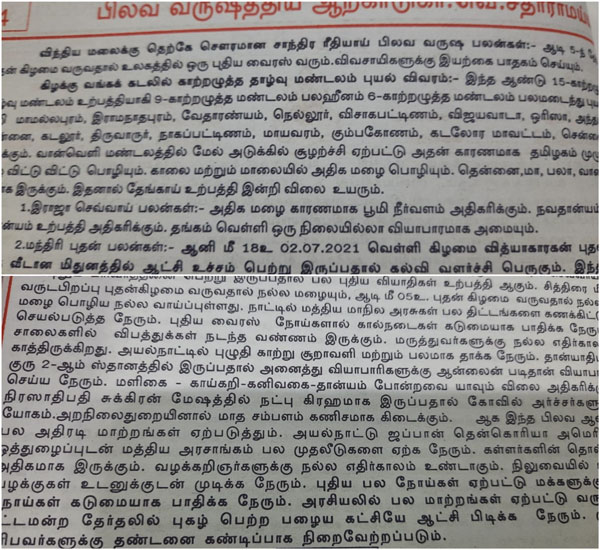 4 பிலவ வருஷத்திய ஆற்காடு கா.வெ.சீதாராமய்
விந்திய மலைக்கு தெற்கே சௌரமான சாந்திர ரீதியாய் பிலவ வருஷ பலன்கள்:- ஆடி 5-ந்
கிழமை வருவதால் உலகத்தில் ஒரு புதிய வைரஸ் வரும்.விவசாயிகளுக்கு இயற்கை பாதகம் செய்யும்.
கிழக்கு வங்கக் கடலில் காற்றழுத்த தாழ்வு மண்டலம் புயல் விவரம்:- இந்த ஆண்டு 15-காற்றழு
மண்டலம் உற்பத்தியாகி 9-காற்றழுத்த மண்டலம் பலஹீனம் 6-காற்றழுத்த மண்டலம் பலமடைந்து புய
மாமல்லபுரம், இராமநாதபுரம், வேதாரண்யம், நெல்லூர், விசாகபட்டிணம், விஜயவாடா, ஒரிஸா, அந்த
கடலூர், திருவாரூர், நாகப்பட்டிணம், மாயவரம், கும்பகோணம், கடலோர மாவட்டம், சென்னை
க்கும். வான்வெளி மண்டலத்தில் மேல் அடுக்கில் சூழற்ச்சி ஏற்பட்டு அதன் காரணமாக தமிழகம் முழு
விட்டு விட்டு பொழியும். காலை மற்றும் மாலையில் அதிக மழை பொழியும். தென்னை,மா, பலா, வா
இருக்கும். இதனால் தேங்காய் உற்பத்தி இன்றி விலை உயரும்.
1.இராஜா செவ்வாய் பலன்கள்:- அதிக மழை காரணமாக பூமி நீர்வளம் அதிகரிக்கும். நவதான்யம்
உற்பத்தி அதிகரிக்கும். தங்கம் வெள்ளி ஒரு நிலையில்லா வியாபாரமாக அமையும்.
2.மந்திரி புதன் பலன்கள்:- ஆனி மீ 18உ 02.07.2021 வெள்ளி கிழமை வித்யாகாரகன் புத
வீடான மிதுனத்தில் ஆட்சி உச்சம் பெற்று இருப்பதால் கல்வி வளர்ச்சி பெருகும். இந்
பெற்று இருப்பதால் பல புதிய வியாதிகள் உற்பத்தி ஆகும். சித்திரை மீ
வருடபிறப்பு புதன்கிழமை வருவதால் நல்ல மழையும், ஆடி மீ 05உ. புதன் கிழமை வருவதால் நல்
மழை பொழிய நல்ல வாய்ப்புள்ளது. நாட்டில் மத்திய மாநில அரசுகள் பல திட்டங்களை கணக்கிட்
செயல்படுத்த நேரும். புதிய வைரஸ் நோய்களால் கால்நடைகள் கடுமையாக பாதிக்க நேரு
சாலைகளில் விபத்துக்கள் நடந்த வண்ணம் இருக்கும். மருத்துவர்களுக்கு நல்ல எதிர்கால
காத்திருக்கிறது. அயல்நாட்டில் புழுதி காற்று சூறாவளி மற்றும் பலமாக தாக்க நேரும். தான்யாதி
குரு 2-ஆம் ஸ்தானத்தில் இருப்பதால் அனைத்து வியாபாரிகளுக்கு ஆன்லைன் படிதான் வியா
செய்ய நேரும். மளிகை - காய்கறி-கனிவகை-தான்யம் போன்றவை யாவும் விலை அதிகரிக்கு
நிரஸாதிபதி சுக்கிரன் மேஷத்தில் நட்பு கிரஹமாக இருப்பதால் கோவில் அர்ச்சகர்களு
யோகம்.அறநிலைதுறையினால் மாத சம்பளம் கணிசமாக கிடைக்கும். ஆக இந்த பிலவ ஆண்
பல அதிரடி மாற்றங்கள் ஏற்படுத்தும். அயல்நாட்டு ஜப்பான் தென்கொரியா அமெரி
ஒத்துழைப்புடன் மத்திய அரசாங்கம் பல முதலீடுகளை ஏற்க நேரும். கள்ளர்களின் தொல்
அதிகமாக இருக்கும். வழக்கறிஞர்களுக்கு நல்ல எதிர்காலம் உண்டாகும். நிலுவையில்
வழக்குகள் உடனுக்குடன் முடிக்க நேரும். புதிய பல நோய்கள் ஏற்பட்டு மக்களுக்கு
நோய்கள் கடுமையாக பாதிக்க நேரும். அரசியலில் பல மாற்றங்கள் ஏற்பட்டு வரு
சட்டமன்ற தேர்தலில் புகழ் பெற்ற பழைய கட்சியே ஆட்சி பிடிக்க நேரும்.
ரிபவர்களுக்கு தண்டனை கண்டிப்பாக நிறைவேற்றப்படும்.